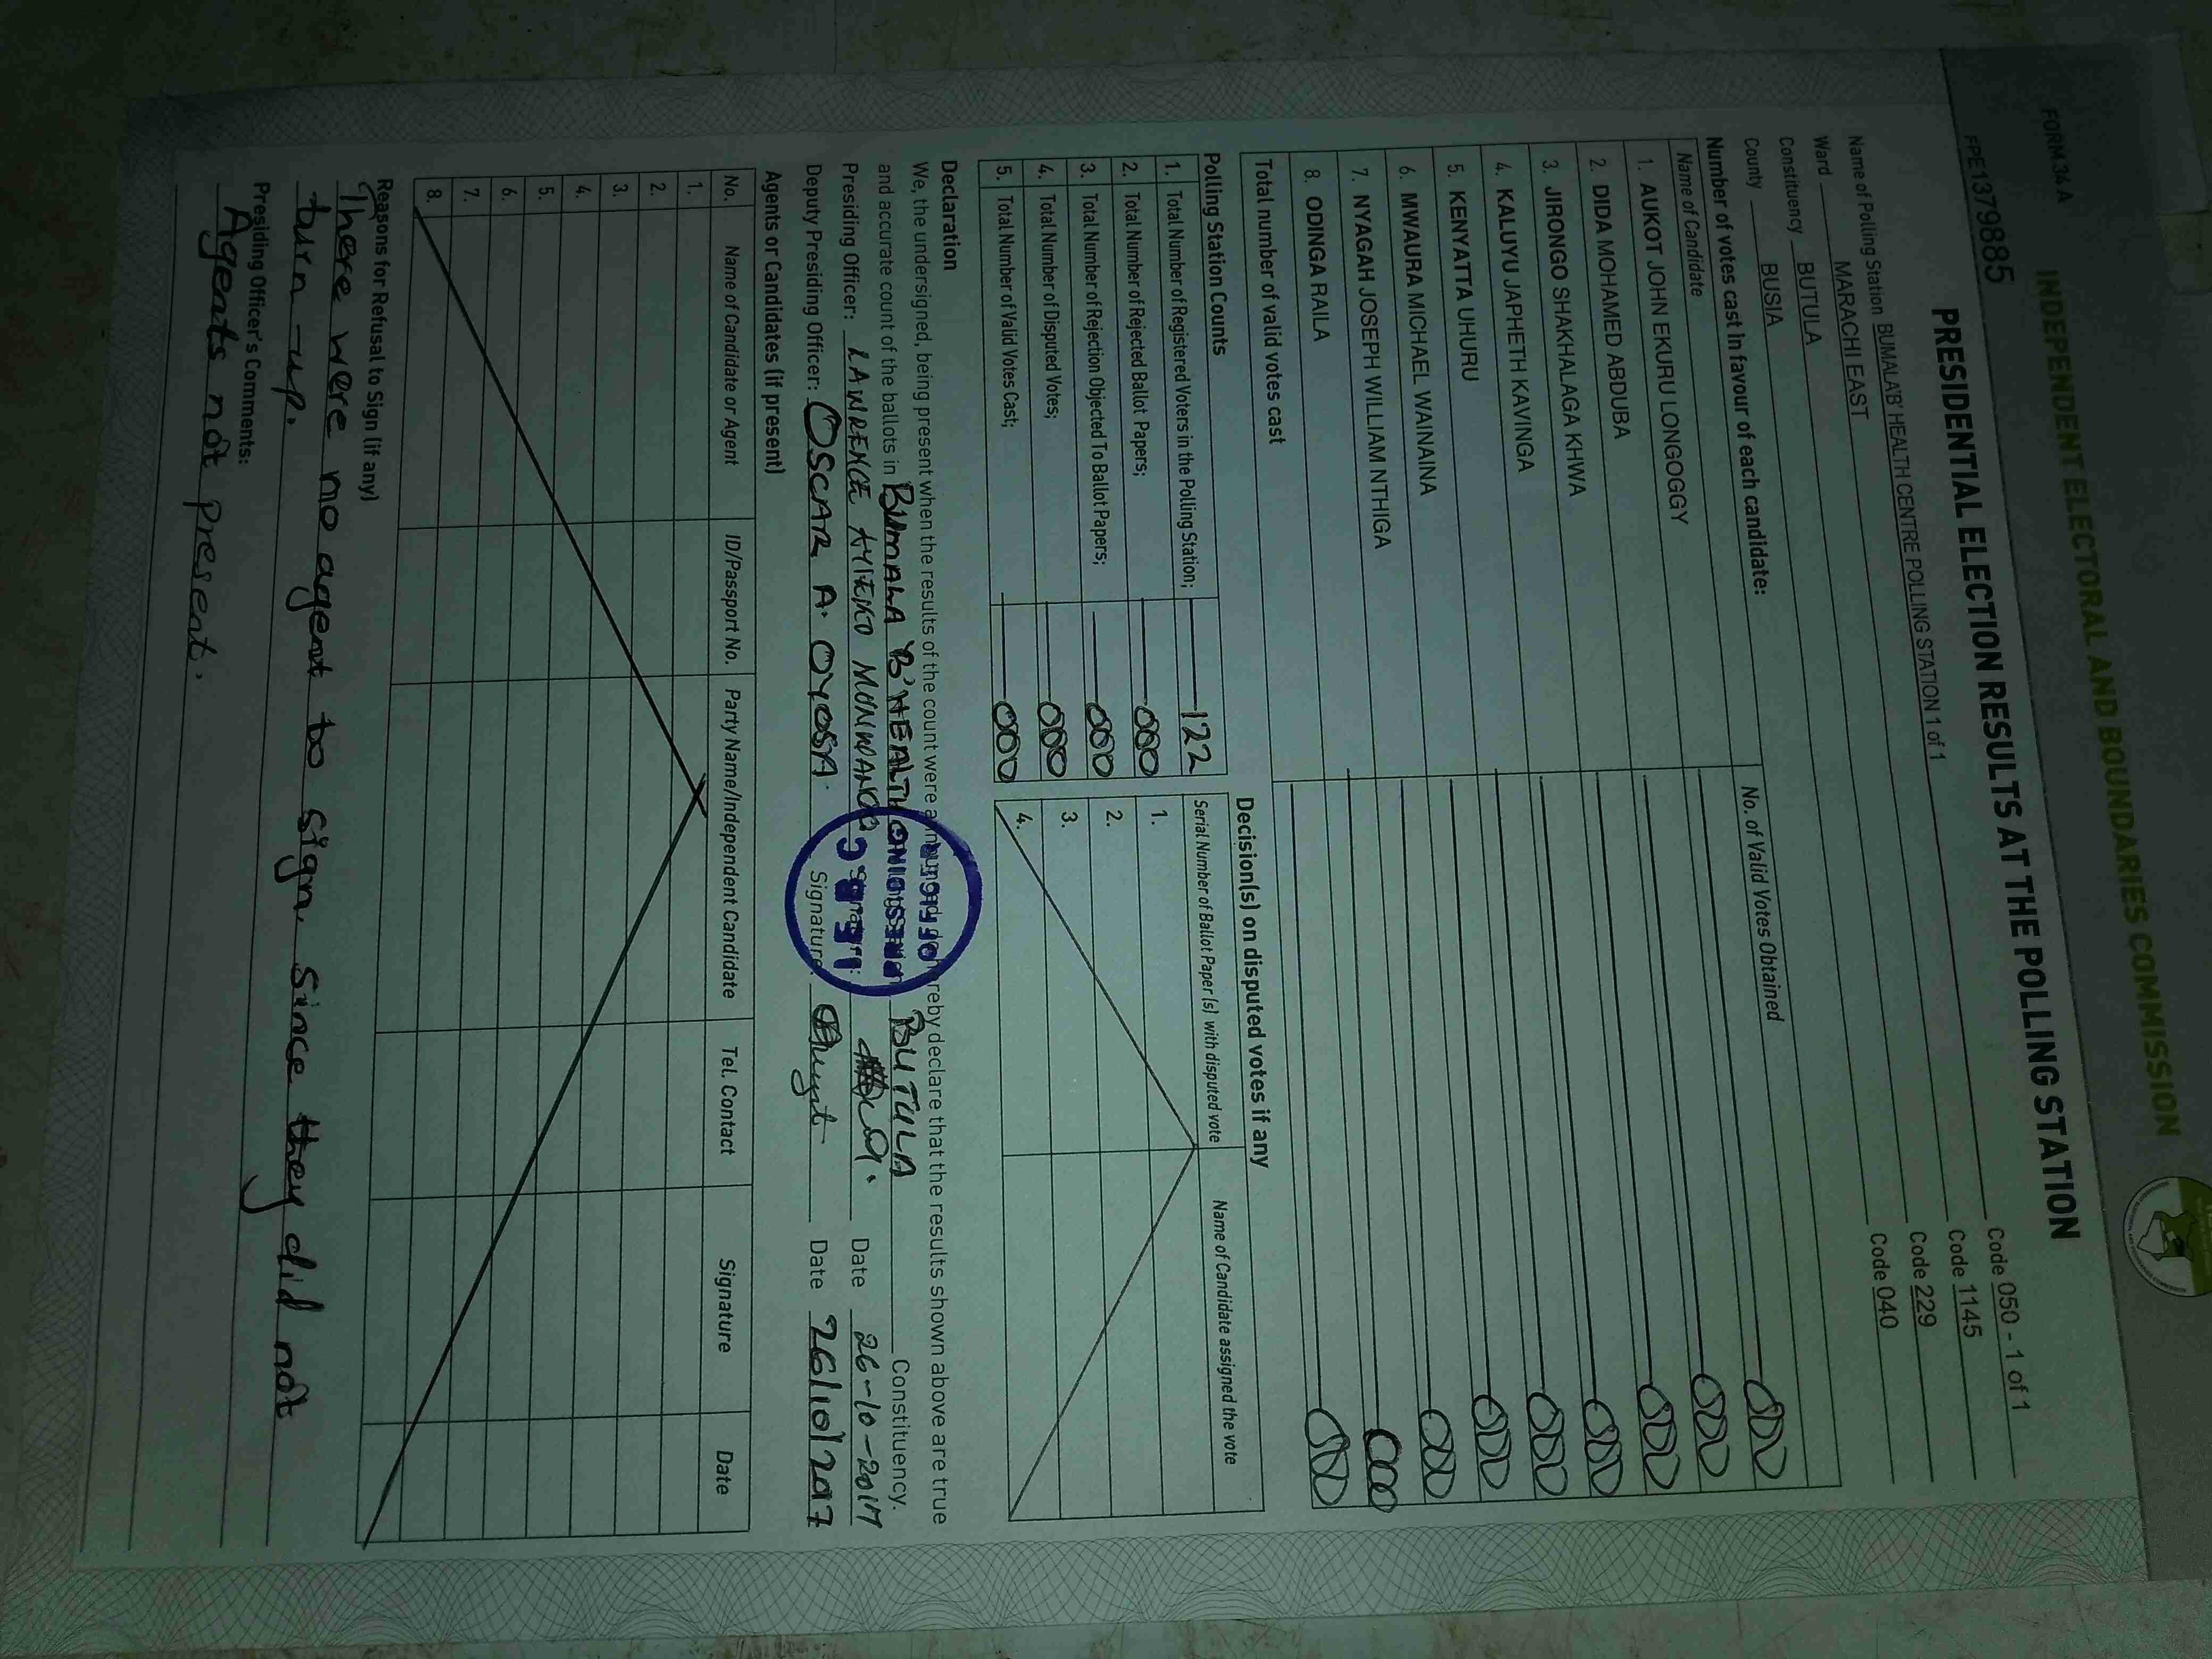 FORM 34 A
INDEPENDENT ELECTORAL AND BOUNDARIES COMMISSION
FPE1379885
PRESIDENTIAL ELECTION RESULTS AT THE POLLING STATION
Name of Polling Station BUMALA'B' HEALTH CENTRE POLLING STATION 1 of 1 Code 050 - 1 of 1
Ward MARACHI EAST Code 1145
Constituency BUTULA Code 229
County BUSIA Code 040
Number of votes cast in favour of each candidate:
Name of Candidate No. of Valid Votes Obtained
1. AUKOT JOHN EKURU LONGOGGY 000
2. DIDA MOHAMED ABDUBA 000
3. JIRONGO SHAKHALAGA KHWA 000
4. KALUYU JAPHETH KAVINGA 000
5. KENYATTA UHURU 000
6. MWAURA MICHAEL WAINAINA 000
7. NYAGAH JOSEPH WILLIAM NTHIGA 000
8. ODINGA RAILA 000
Total number of valid votes cast 000
Polling Station Counts
1. Total Number of Registered Voters in the Polling Station; 122
2. Total Number of Rejected Ballot Papers; 000
3. Total Number of Rejection Objected To Ballot Papers; 000
4. Total Number of Disputed Votes; 000
5. Total Number of Valid Votes Cast; 000
Decision(s) on disputed votes if any
Serial Number of Ballot Paper (s) with disputed vote Name of Candidate assigned the vote
1.
2.
3.
4.
Declaration
We, the undersigned, being present when the results of the count were announced, do hereby declare that the results shown above are true
and accurate count of the ballots in BUMALA 'B' HEALTH BUTULA Constituency.
Presiding Officer: LAWRENCE Signature: Date 26-10-2017
Deputy Presiding Officer: OSCAR A. OYOSA Signature: Date 26/10/2017
PRESIDING
Agents or Candidates (if present)
No. Name of Candidate or Agent ID/Passport No. Party Name/Independent Candidate Tel. Contact Signature Date
1.
2.
3.
4.
5.
6.
7.
8.
Reasons for Refusal to Sign (if any)
There were no agent to sign since they did not
turn-up.
Presiding Officer's Comments:
Agents not present.